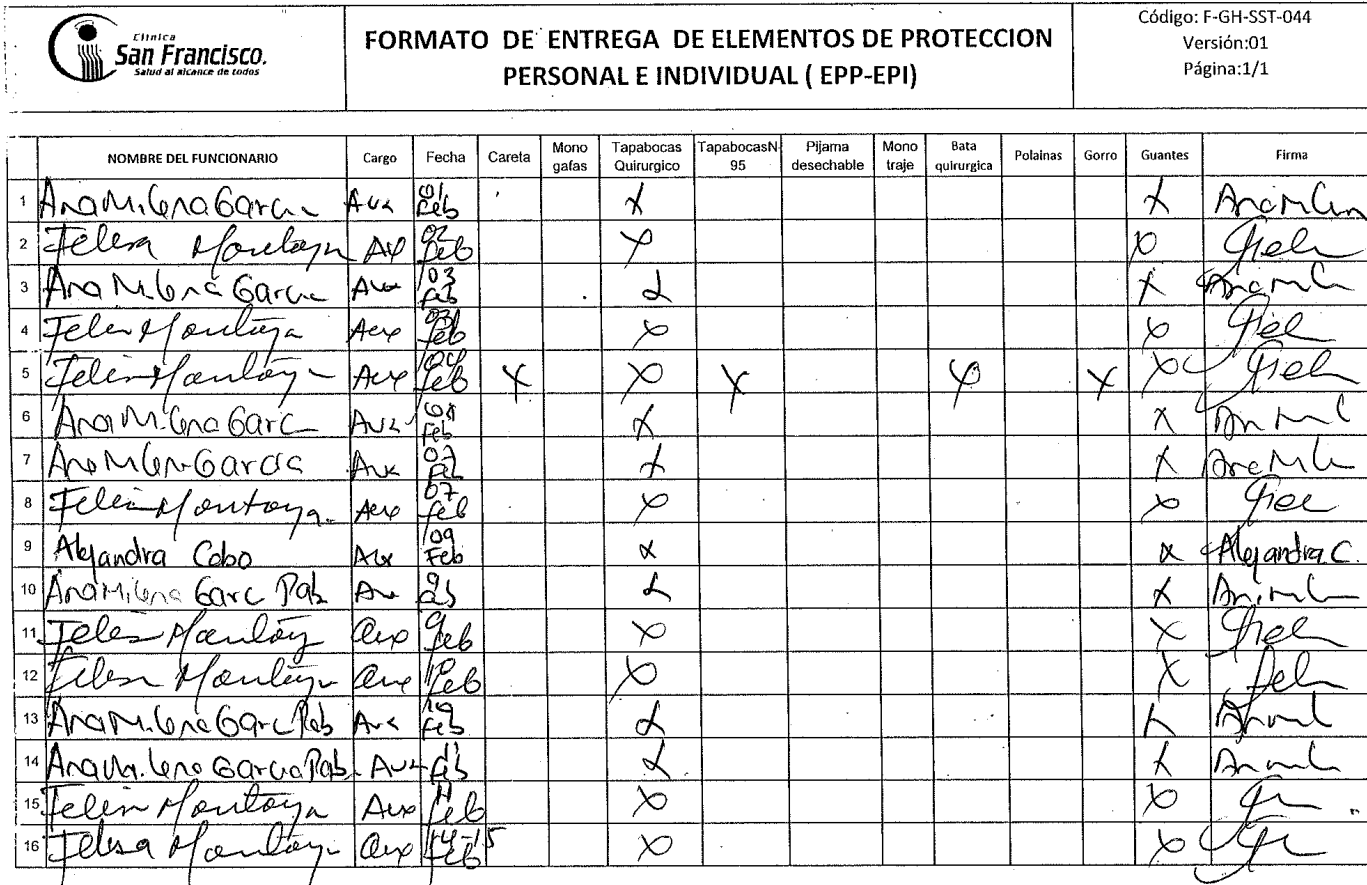 Clinica
San Francisco.
Salud al alcance de todos
FORMATO DE ENTREGA DE ELEMENTOS DE PROTECCION
PERSONAL E INDIVIDUAL ( EPP-EPI)
Código: F-GH-SST-044
Versión:01
Página:1/1
NOMBRE DEL FUNCIONARIO Cargo Fecha Careta Mono gafas Tapabocas Quirurgico TapabocasN 95 Pijama desechable Mono traje Bata quirurgica Polainas Gorro Guantes Firma
1 Ana Milena Garcia Aux 01 Feb X X
2 Felisa Montoya Ax 02 feb X X
3 Ana Milena Garcia Aux 03 feb X X
4 Felisa Montoya Aux 03 feb X X
5 Felisa Montoya Aux 04 feb X X X X X X
6 Ana Milena Garc Aux Feb X X
7 Ana Milen Garcia Aux 07 X X
8 Felisa Montoya Aux 07 feb X X
9 Alejandra Cobo Aux 09 Feb X X Alejandra C.
10 Ana Milena Garc Pab Au X X
11 Felisa Montoya aux 9 feb X X
12 Felisa Montoya aux 10 Feb X X
13 Ana Milena Garc Pab Aux feb X X
14 Ana Milena Garcia Pab Aux X X
15 Felisa Montoya Aux 11 feb X X
16 Felisa Montoya aux 14-15 feb X X